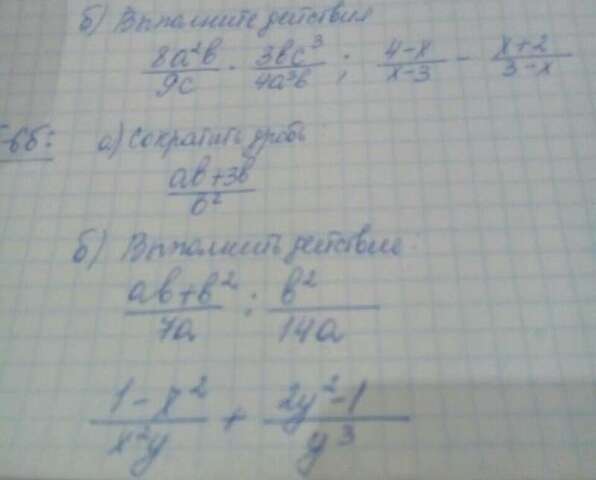 б) Выполните действия
8a²b/9c · 3bc³/4a³b ; 4-x/x-3 - x+2/3-x
-6б: а) Сократить дробь
ab+3b/b²
б) Выполнить действие
ab+b²/7a : b²/14a
1-x²/x²y + 2y²-1/y³